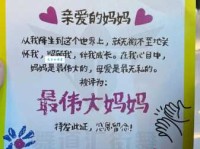 亲爱的妈妈
从我降生到这个世界上,就无微不至地关
怀我,照顾我,伴我成长。在我心目中,
妈妈是最伟大的,母爱是最无私的。
被评为:
最伟大妈妈
特发此证,以资留念!